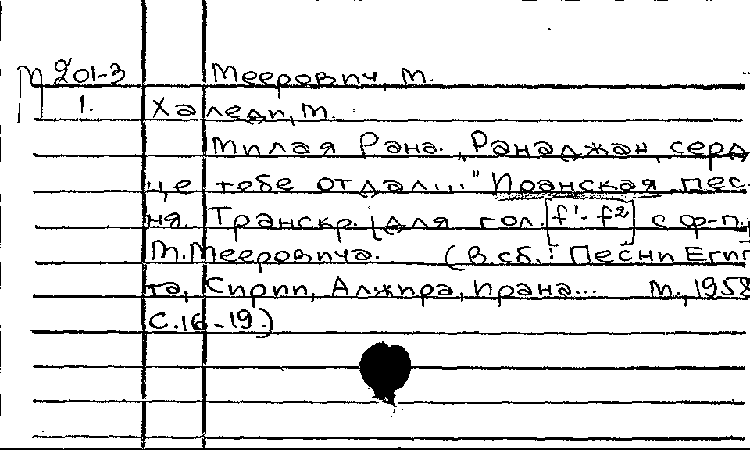 М 201-3 Меерович, М.
1. Халеди, М.
Милая Рана. "Ранаджан, серд
це тебе отдали." Иранская пес
ня. Транскр. [для гол. [f¹-f²] с ф-п.]
М. Мееровича. (В сб.: Песни Егип
та, Сирии, Алжира, Ирана... М., 1958
С. 16-19.)